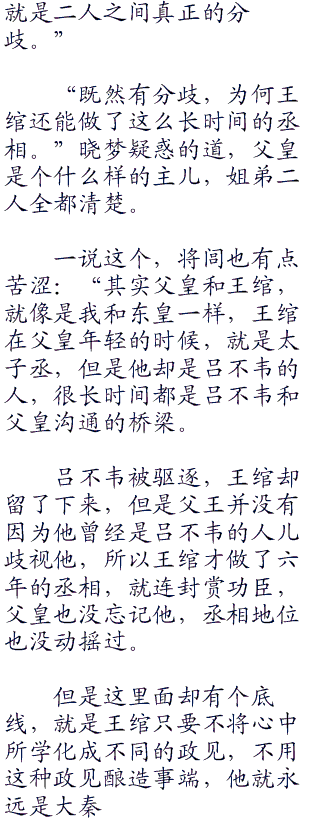 就是二人之间真正的分
歧。”
“既然有分歧，为何王
绾还能做了这么长时间的丞
相。”晓梦疑惑的道，父皇
是个什么样的主儿，姐弟二
人全都清楚。
一说这个，将闾也有点
苦涩：“其实父皇和王绾，
就像是我和东皇一样，王绾
在父皇年轻的时候，就是太
子丞，但是他却是吕不韦的
人，很长时间都是吕不韦和
父皇沟通的桥梁。
吕不韦被驱逐，王绾却
留了下来，但是父王并没有
因为他曾经是吕不韦的人儿
歧视他，所以王绾才做了六
年的丞相，就连封赏功臣，
父皇也没忘记他，丞相地位
也没动摇过。
但是这里面却有个底
线，就是王绾只要不将心中
所学化成不同的政见，不用
这种政见酿造事端，他就永
远是大秦